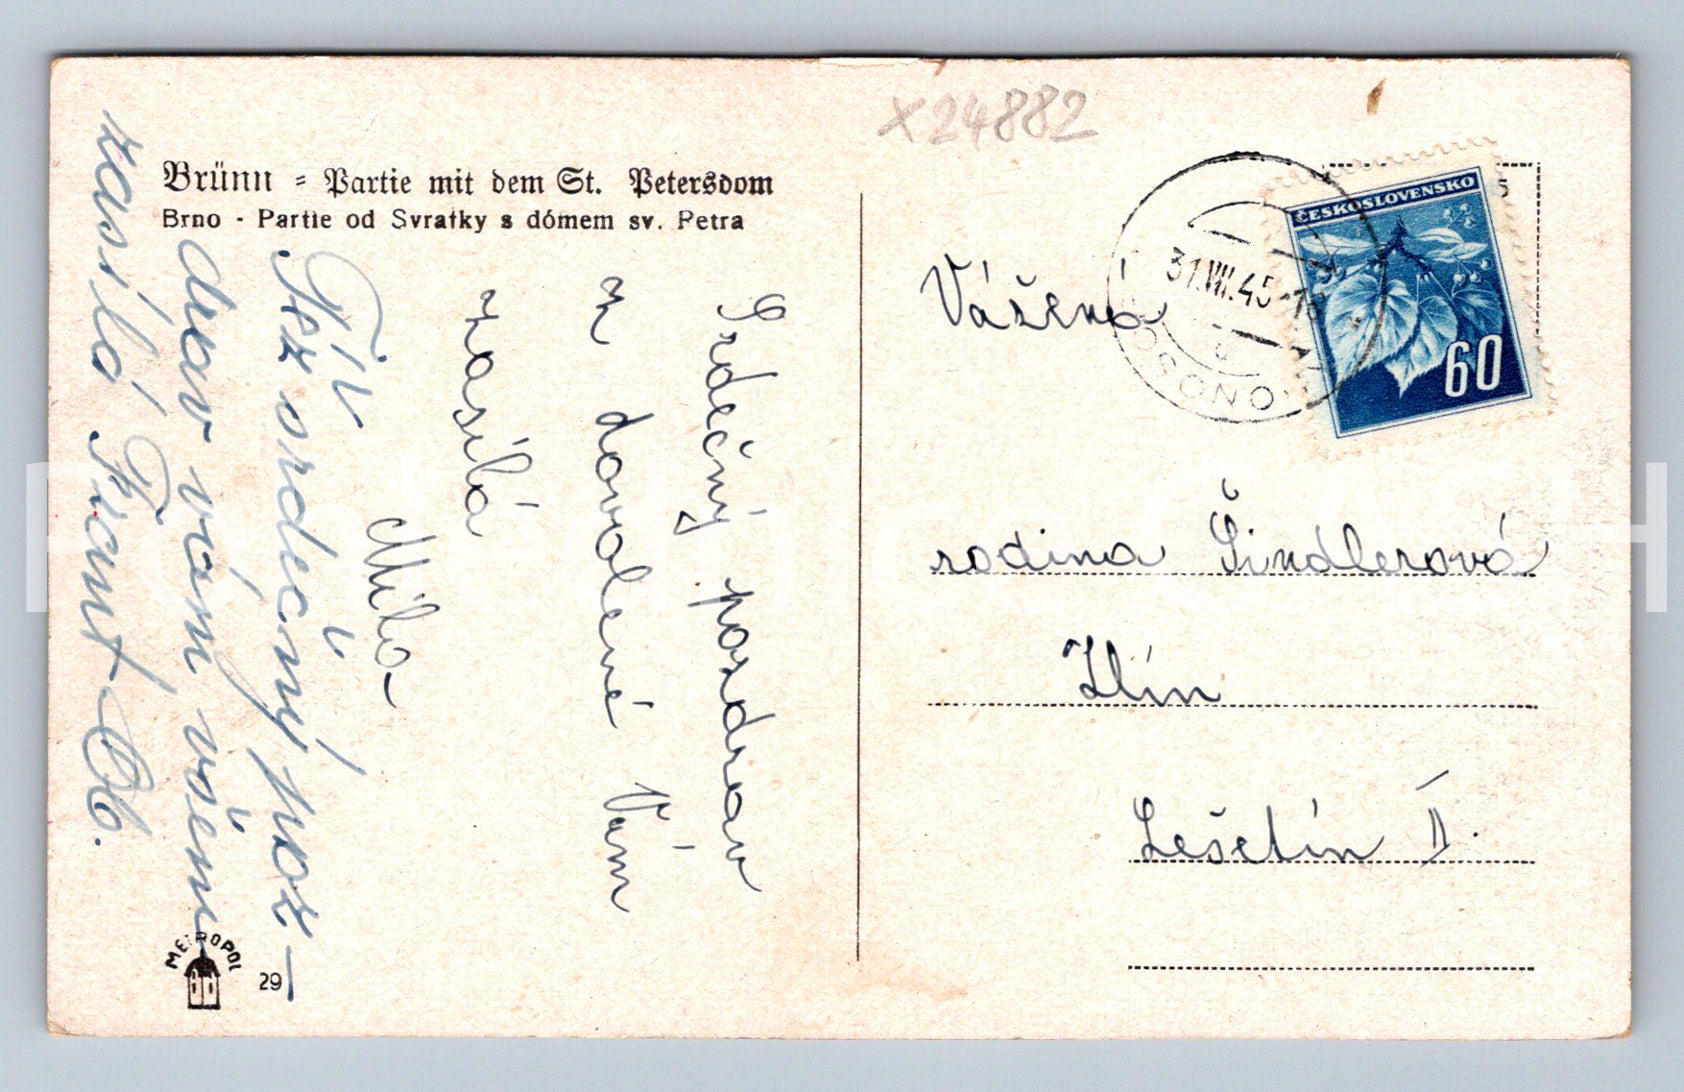 x24882
Brünn - Partie mit dem St. Petersdom
Brno - Partie od Svratky s dómem sv. Petra
Srdečný pozdrav
z dovolené Vám
zasílá
Míla
Též srdečný poz-
drav vám všem
zasílá Frant
METROPOL
29
ČESKOSLOVENSKO
60
31.VII.45-18
Vážená
rodina Šindlerová
Zlín
Lešetín II.